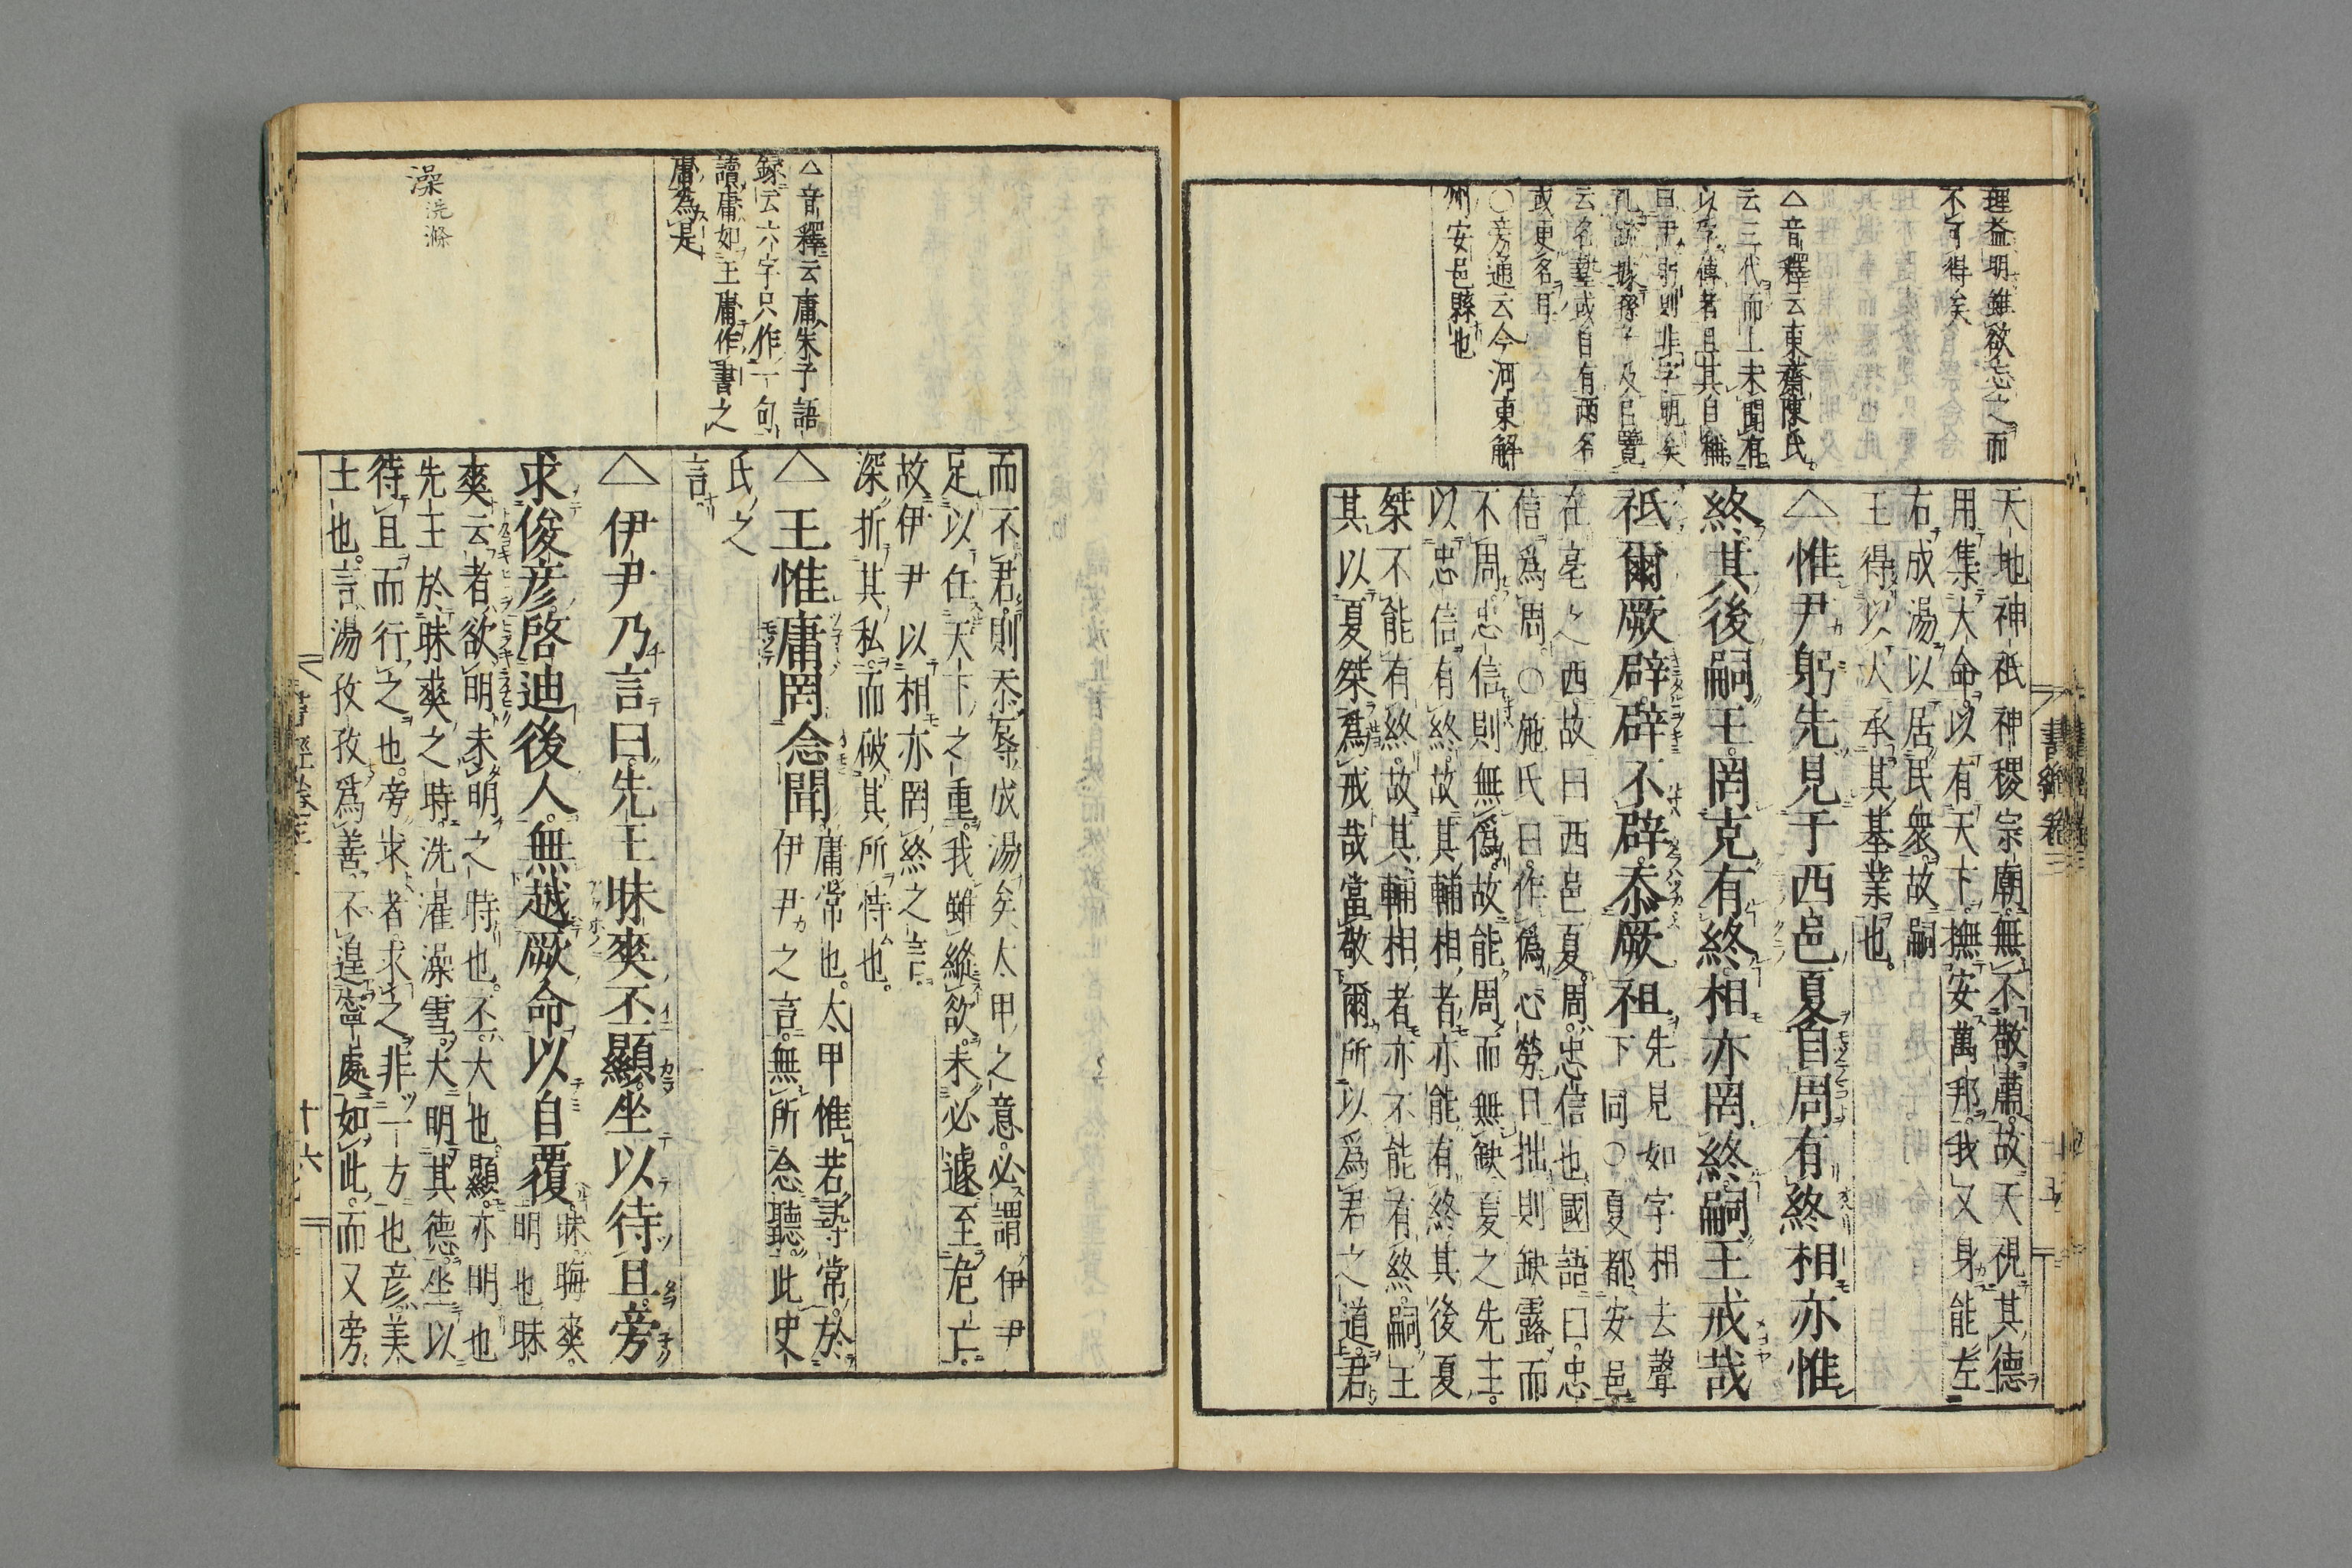 理益明雖欲忘之而
不可得矣
△音釋云東齋陳氏
云三代而上未聞有
以字傳者且其自稱
曰尹躬則非字明矣
孔疏據孫子及呂覽
云名摯或自有兩名
或更名耳
○旁通云今河東解
州安邑縣也
天地神祇神稷宗廟無不敬肅故天視其德
用集大命以有天下撫安萬邦我又身能左
右成湯以居民衆故嗣
王得以大承其基業也
△惟尹躬先見于西邑夏自周有終相亦惟
終其後嗣王罔克有終相亦罔終嗣王戒哉
祇爾厥辟辟不辟忝厥祖先見如字相去聲
下同○夏都安邑
在亳之西故曰西邑夏周忠信也國語曰忠
信爲周○施氏曰作僞心勞日拙則缺露而
不周忠信則無僞故能周而無缺夏之先王
以忠信有終故其輔相者亦能有終其後夏
桀不能有終故其輔相者亦不能有終嗣王
其以夏桀爲戒哉當敬爾所以爲君之道君
書經卷三
△音釋云庸朱子語
録云六字只作一句
讀庸如王庸作書之
庸為是
澡洗滌
而不君則忝辱成湯矣太甲之意必謂伊尹
足以任天下之重我雖縱欲未必遽至危亡
故伊尹以相亦罔終之言
深折其私而破其所恃也
△王惟庸罔念聞庸常也太甲惟若尋常於
伊尹之言無所念聽此史
氏之
言
△伊尹乃言曰先王昧爽丕顯坐以待旦旁
求俊彦啓迪後人無越厥命以自覆昧晦爽
明也昧
爽云者欲明未明之時也丕大也顯亦明也
先王於昧爽之時洗濯澡雪大明其德坐以
待旦而行之也旁求者求之非一方也彦美
士也言湯孜孜爲善不遑寧處如此而又旁
書經卷三
十六